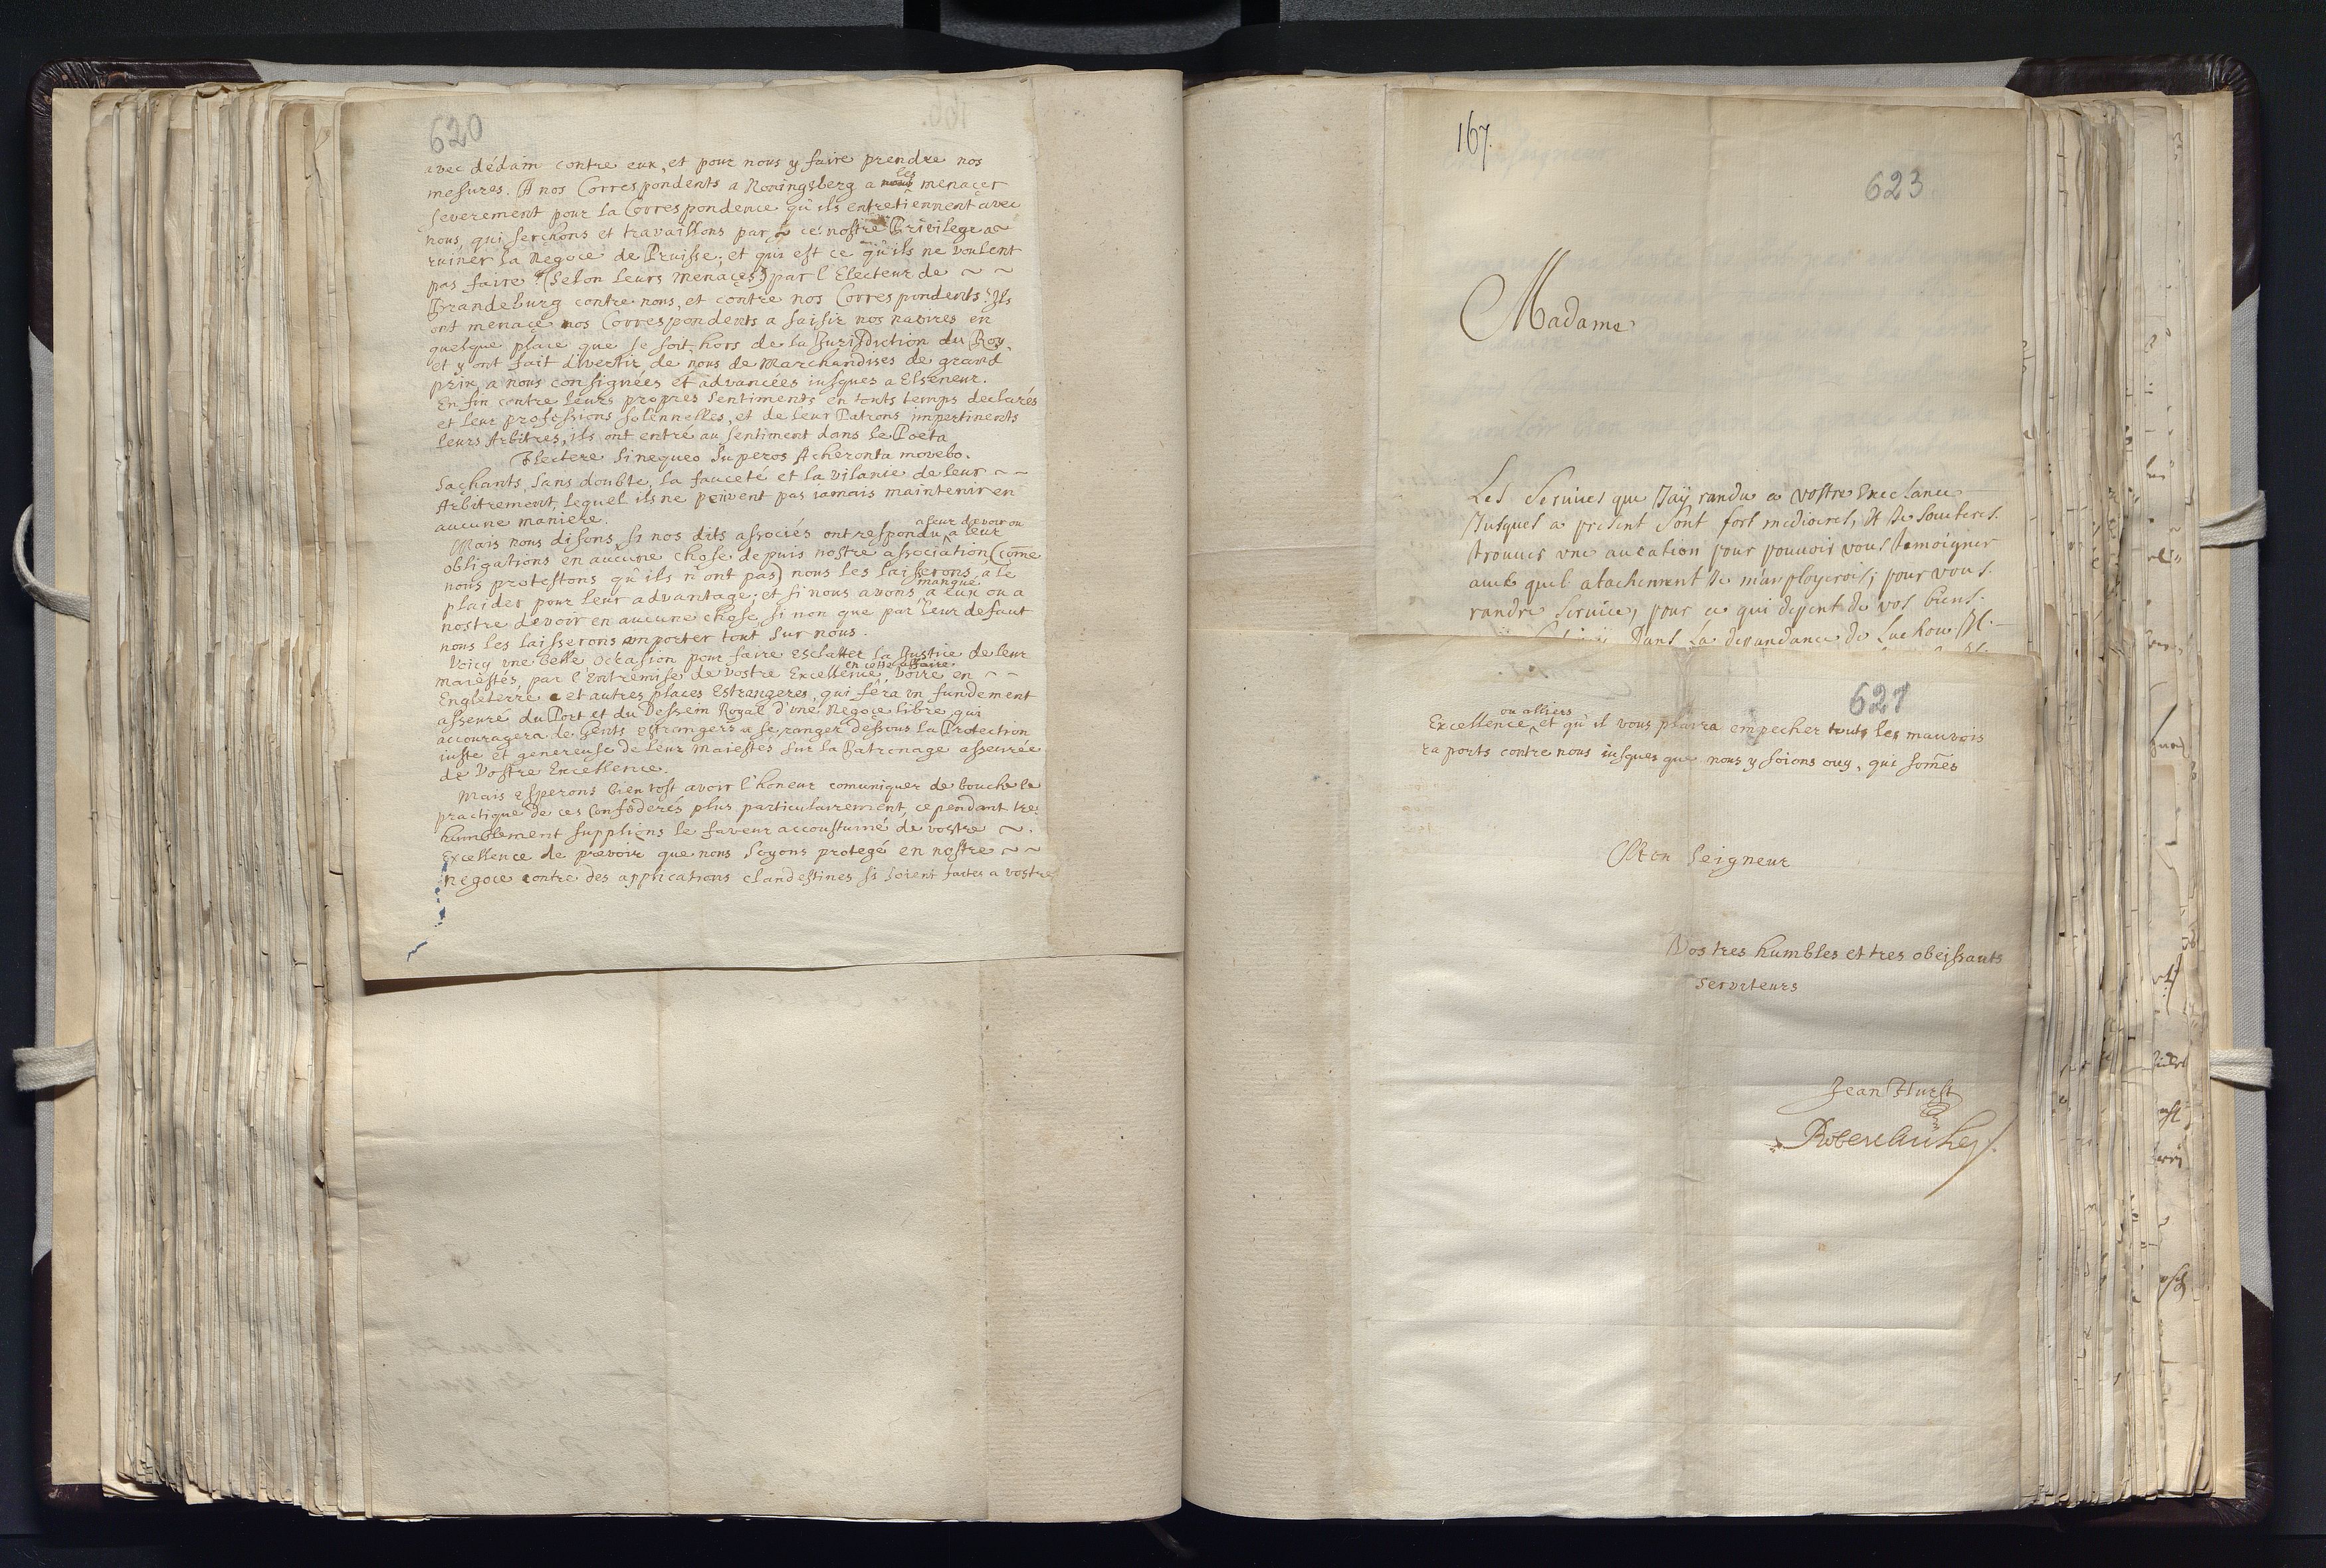 620
avec dédain contre eux, et pour nous y faire prendre nos
mesures. A nos Correspondents a Koningsberg a les menacer
severement pour la Correspondence qu'ils entretiennent avec
nous, qui serchons et travaillons par ce nostre Privilege a
ruiner la Negoce de Pruisse; et qui est ce qu'ils ne voulent
pas faire (selon leurs menaces) par l'Electeur de
Brandeburg contre nous, et contre nos Correspondents? Ils
ont menacé nos Correspondents a saisir nos navires en
quelque place que se soit hors de la Jurisdiction du Roy,
et y ont fait divertir de nous de Marchandises de grand
prix, a nous consignées et advancées iusques a Elseneur.
En fin contre leurs propres sentiments en touts temps declarés
et leur professions solennelles, et de leur Patrons impertinents
leurs Arbitres, ils ont entré au sentiment dans le Poeta
Flectere si nequeo Superos Acheronta movebo.
Sachants, sans doubte, la fauceté et la vilanie de leur
Arbitrement, lequel ils ne peuvent pas iamais maintenir en
aucune maniere.
Mais nous disons, si nos dits associés ont respondu a leur devoir ou a leur
obligations en aucune chose depuis nostre association (come
nous protestons qu'ils n'ont pas) nous les laisserons à le
plaider pour leur advantage; et si nous avons manqué a eux ou a
nostre devoir en aucune chose, si non que par leur defaut
nous les laisserons emporter tout sur nous.
Voicy une belle occasion pour faire esclatter la Justice de leur
maiestés, par l'Entremise de Vostre Excellence en cette affaire, voire en
Engleterre et autres places Estrangeres, qui sera un fundement
asseuré du Port et du Dessein Royal d'une Negoce libre, qui
accouragera de Gents estrangers a se ranger dessous la Protection
iuste et genereuse de leur maiestes sur la Patronage asseurée
de Vostre Excellence.
Mais esperons bien tost avoir l'honeur comuniquer de bouche le
practique de ces Confoderés plus particulairement, cependant tres
humblement supplions le faveur accoustumé de vostre
Excellence de prevoir que nous soyons protegé en nostre
negoce contre des applications clandestines si soient faites a vostre
167.
623
Madame
Les Seruices que J'aÿ randu a vostre Excelance
Jusques a present sont fort mediocres, Je souteres
trouuer vne aucation pour pouuoir vous temoigner
auec quel atachement Je m'anployerois, pour vous
randre seruice, pour ce qui depent de vos biens.
Dans la depandance de Luchou
621
Excellence ou alliers, et qu'il vous plaira empecher touts les mauvois
raports contre nous iusques que nous y soions ouy, qui somes
Mon Seigneur
Vos tres humbles et tres obeissants
serviteurs
Jean Hurst